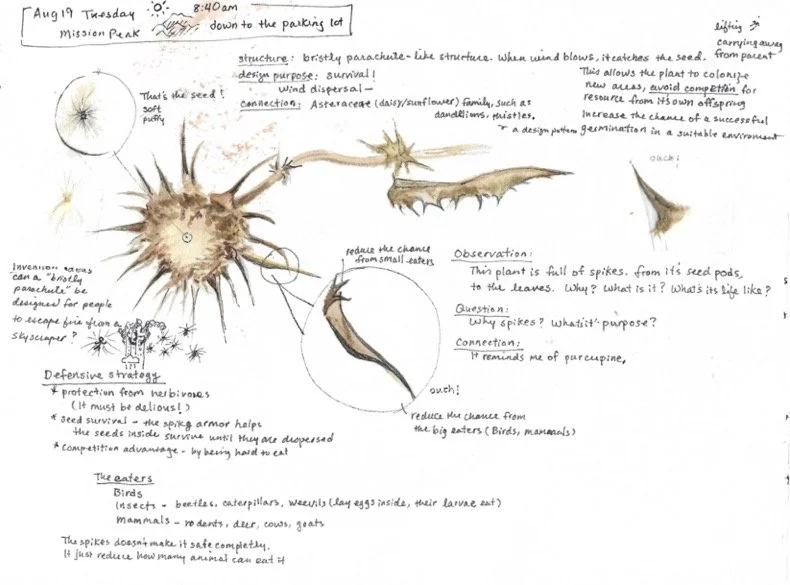 Aug 19 Tuesday 8:40am
Mission Peak down to the parking lot
lifting
carrying away
from parent
structure: bristly parachute-like structure. When wind blows, it catches the seed.
design purpose: survival!
Wind dispersal—
Connection: Asteraceae (daisy/sunflower) family, such as
dandelions, thistles.
a design pattern
This allows the plant to colonize
new areas, avoid competion for
resource from its own offspring
Increase the chance of a successful
germination in a suitable enviroment
That's the seed!
soft
puffy
ouch!
Invention ideas
can a "bristly
parachute" be
designed for people
to escape fire from a
skyscaper?
reduce the chance
from small eaters
Observation:
This plant is full of spikes. from it's seed pods,
to the leaves. Why? What is it? What's its life like?
Question:
Why spikes? What it's purpose?
Connection:
It reminds me of purcupine.
ouch!
reduce the chance from
the big eaters (Birds, mammals)
Defensive strategy
* protection from herbivores
(It must be delious!)
* Seed survival - the spiky armor helps
the seeds inside survive until they are dispersed
* Competition advantage - by being hard to eat
The eaters
Birds
Insects - beetles, caterpillars, weevils (lay eggs inside, their larvae eat)
Mammals - rodents, deer, cows, goats
The spikes doesn't make it safe completly.
It just reduce how many animal can eat it